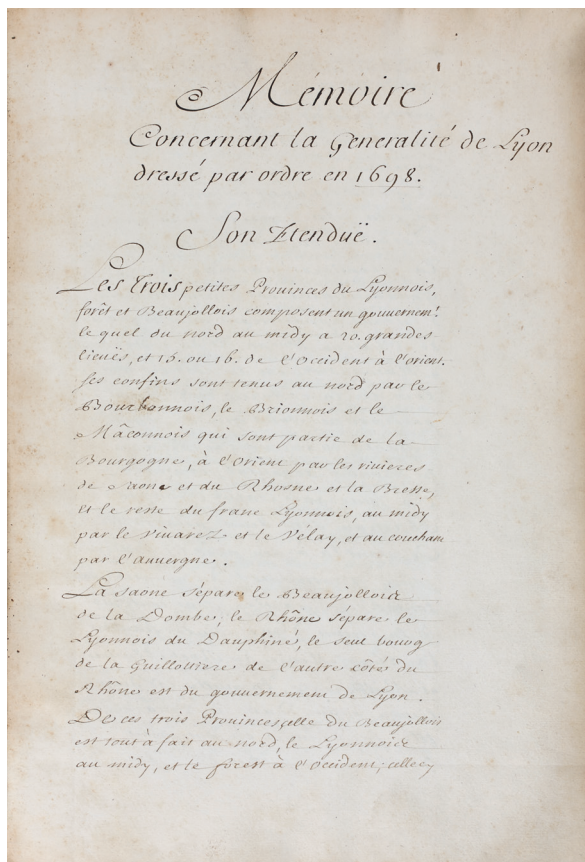 Mémoire
Concernant la Generalité de Lyon
dressé par ordre en 1698.
Son Etenduë.
Les trois petites Provinces du Lyonnois,
forêt et Beaujollois composent un gouvernem.t
le quel du nord au midy a 20. grandes
lieuës, et 15. ou 16. de l'Occident à l'orient.
ses confins sont tenus au nord par le
Bourbonnois, le Brionnois et le
Mâconnois qui sont partie de la
Bourgogne, à l'Orient par les rivieres
de Saone et du Rhosne et la Bresse,
et le reste du franc Lyonnois, au midy
par le Vivarez et le Vélay, et au couchant
par l'auvergne.
La saone sépare le Beaujollois
de la Dombe, le Rhône sépare le
Lyonnois du Dauphiné, le seul bourg
de la Guillotiere de l'autre côté du
Rhône est du gouvernement de Lyon.
De ces trois Provinces, elle du Beaujollois
est tout à fait au nord, le Lyonnois
au midy, et le forest à l'Occident; celle cy